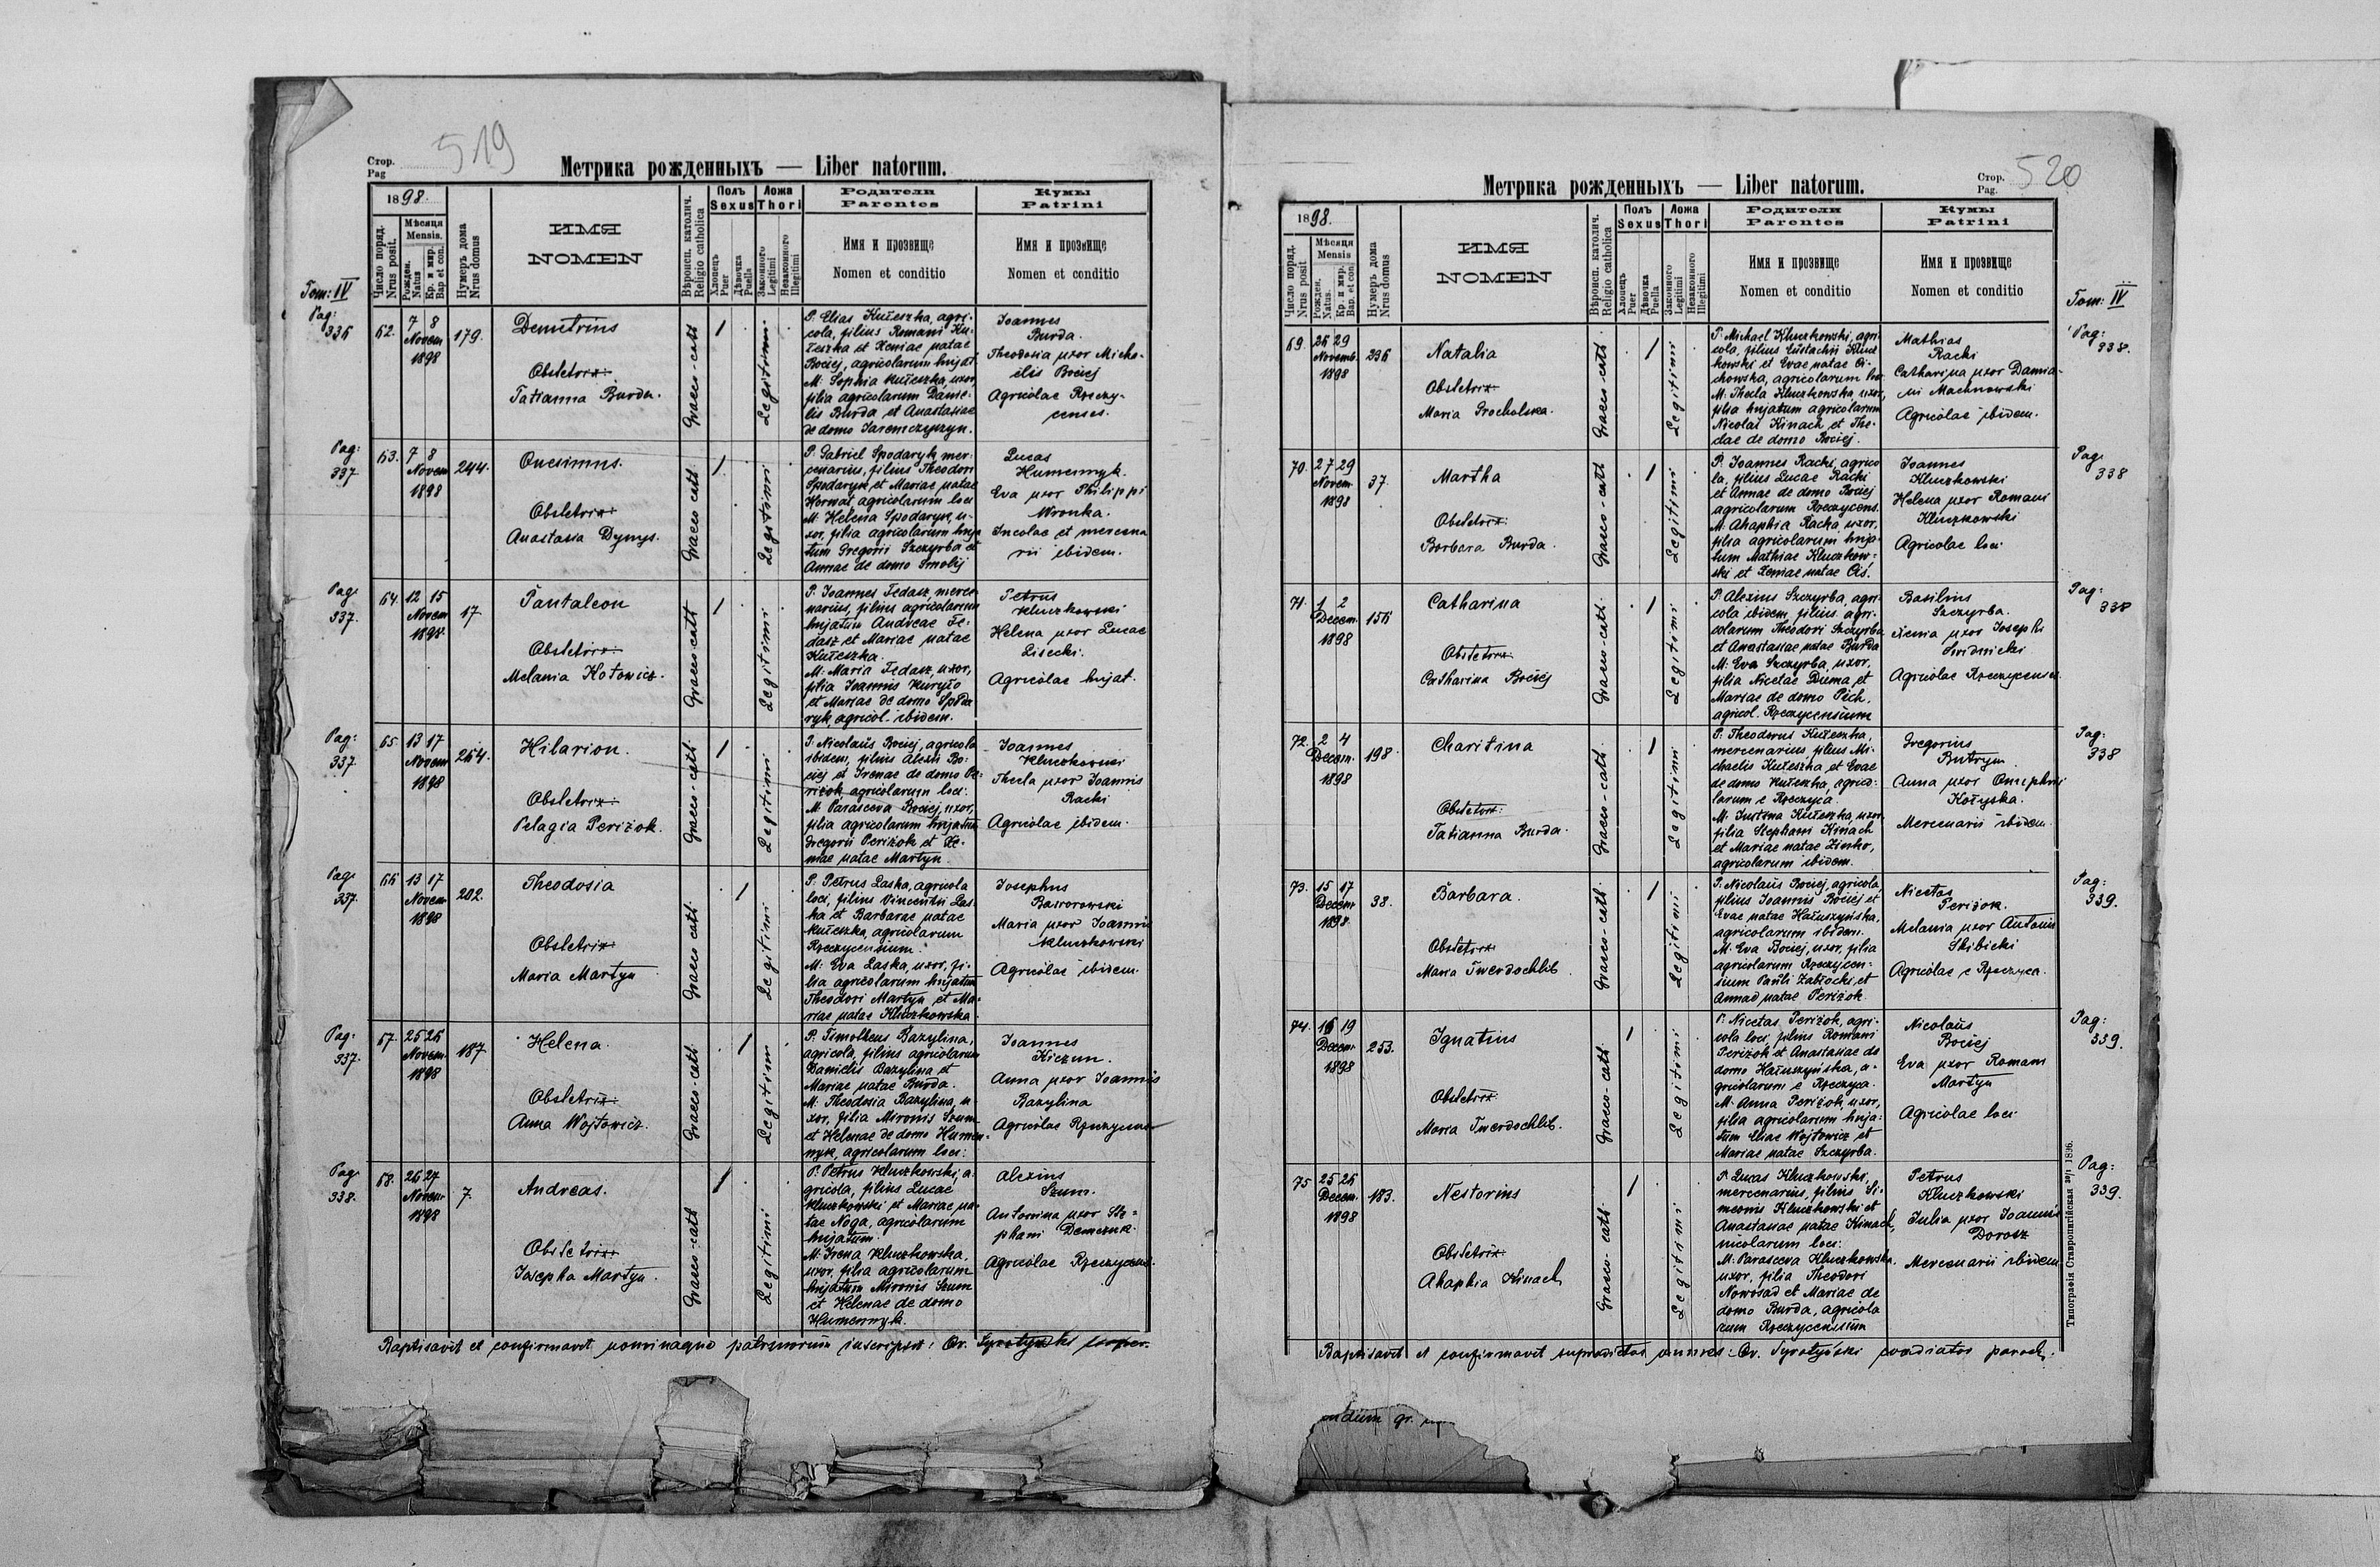 Стор.
Pag
519
Метрика рожденныхъ — Liber natorum.
1898.
Число поряд.
Nrus posit.
Мѣсяця
Mensis.
Рожден.
Natus
Кр. и мир.
Bap et con.
Нумеръ дома
Nrus domus
ИМЯ
NOMEN
Вѣроисп. католич.
Religio catholica
Полъ
Sexus
Хлопецъ
Puer
Дѣвочка
Puella
Ложа
Thori
Законного
Legitimi
Незаконного
Illegitimi
Родители
Parentes
Имя и прозвище
Nomen et conditio
Кумы
Patrini
Имя и прозвище
Nomen et conditio
Tom: IV
Pag:
336
62.
7 8
Novem
1898
179.
Demetrius
Obstetrix:
Tatianna Burda.
Graeco-cath
1
Legitimi
P. Elias Kułeszka, agri-
cola, filius Romani Ku-
łeszka et Xeniae natae
Bociej, agricolarum hujat.
M. Sophia Kułeszka, uxor,
filia agricolarum Danie-
lis Burda et Anastasiae
de domo Jaremczyszyn.
Ioannes
Burda.
Theodosia uxor Micha-
elis Bociej
Agricolae Rzeczy-
censes.
Pag:
337
63.
7 8
Novem
1898
244.
Onesimus.
Obstetrix:
Anastasia Dymys.
Graeco cath
1
Legitimi
P. Gabriel Spodaryk mer-
cenarius, filius Theodori
Spodaryk et Mariae natae
Kornat agricolarum loci
M: Helena Spodaryk, u-
xor, filia agricolarum huja
tum Gregorii Szczyrba et
Annae de domo Smolij
Lucas
Humennyk.
Eva uxor Philippi
Wronka.
Incolae et mercena
rii ibidem.
Pag.
337.
64.
12 15
Novem
1898.
17.
Pantaleon
Obstetrix:
Melania Kotowicz.
Graeco-cath
1
Legitimi
P. Ioannes Fedasz, merce-
narius, filius agricolarum
hujatum Andreae Fe-
dasz et Mariae natae
Kułeszka.
M: Maria Fedasz, uxor,
filia Ioannis Kuryło
et Mariae de domo Spoda
ryk, agricol. ibidem.
Petrus
Kluczkowski
Helena uxor Lucae
Lisecki.
Agricolae hujat.
Pag:
337.
65.
13 17
Novem
1898
264.
Hilarion.
Obstetrix:
Pelagia Periżok.
Graeco-cath.
1
Legitimi
P. Nicolaus Bociej, agricola
ibidem, filius Alexii Bo-
ciej et Irenae de domo Pe-
riżok agricolarum loci.
M. Parasceva Bociej, uxor,
filia agricolarum hujatum
Gregorii Periżok et Xe-
niae natae Martyn.
Ioannes
Kluczkowski
Thecla uxor Ioannis
Racki
Agricolae ibidem.
Pag.
337.
66
13 17
Novem
1898
202.
Theodosia
Obstetrix:
Maria Martyn
Graeco cath.
1
Legitimi
P. Petrus Laska, agricola
loci, filius Vincentii Las-
ka et Barbarae natae
Kułeszka, agricolarum
Rzeczycensium.
M: Eva Laska, uxor, fi-
lia agricolarum hujatum
Theodori Martyn et Ma-
riae natae Kluczkowska
Iosephus
Baworowski
Maria uxor Ioannis
Kluczkowski
Agricolae ibidem.
Pag:
337.
67.
25 26
Novem.
1898
187.
Helena.
Obstetrix:
Anna Wojtowicz.
Graeco-cath.
1
Legitimi
P. Timotheus Bazylina,
agricola, filius agricolarum
Danielis Bazylina et
Mariae natae Burda.
M: Theodosia Bazylina, u-
xor, filia Mironis Szum
et Helenae de domo Humen-
nyk, agricolarum loci.
Ioannes
Kiczun.
Anna uxor Ioannis
Bazylina
Agricolae Rzeczycenses
Pag.
338.
68.
26 27
Novem
1898
7.
Andreas.
Obstetrix:
Iosepha Martyn.
Graeco-cath
1
Legitimi
P. Petrus Kluczkowski, a-
gricola, filius Lucae
Kluczkowski et Mariae na-
tae Noga, agricolarum
hujatum.
M: Irena Kluczkowska,
uxor, filia agricolarum
hujatum Mironis Szum
et Helenae de domo
Humennyk.
Alexius
Szum.
Antonina uxor Ste-
phani Demczuk.
Agricolae Rzeczycens.
Baptisavit et confirmavit nominaque patrinorum inscripsit: Gr. Syrotyński
Стор.
Pag.
520
Метрика рожденныхъ — Liber natorum.
1898.
Число поряд.
Nrus posit
Мѣсяця
Mensis
Рожден.
Natus.
Кр. и мир.
Bap. et con.
Нумеръ дома
Nrus domus
ИМЯ
NOMEN
Вѣроисп. католич.
Religio catholica
Полъ
Sexus
Хлопецъ
Puer
Дѣвочка
Puella
Ложа
Thori
Законного
Legitimi
Незаконного
Illegitimi
Родители
Parentes
Имя и прозвище
Nomen et conditio
Кумы
Patrini
Имя и прозвище
Nomen et conditio
Tom: IV
69.
26 29
Novemb.
1898
236
Natalia
Obstetrix
Maria Grocholska.
Graeco-cath.
1
Legitimi
P. Michael Kluczkowski, agri-
cola, filius Eustachii Klucz
kowski et Evae natae Ci-
chowska, agricolarum loc.
M: Thecla Kluczkowska, uxor,
filia hujatum agricolarum
Nicolai Kinach et The-
clae de domo Bociej.
Mathias
Racki
Catharina uxor Damia-
ni Machnowski
Agricolae ibidem.
Pag:
338.
70.
27 29
Novem
1898
37.
Martha
Obstetrix:
Barbara Burda.
Graeco-cath
1
Legitimi
P. Ioannes Racki, agrico
la, filius Lucae Racki
et Annae de domo Bociej
agricolarum Rzeczycens.
M: Ahaphia Racka uxor,
filia agricolarum huja-
tum Mathiae Kluczkow-
ski et Xeniae natae Ciś.
Ioannes
Kluczkowski
Helena uxor Romani
Kluczkowski
Agricolae loci
Pag.
338
71.
1 2
Decem.
1898
156
Catharina
Obstetrix
Catharina Bociej
Graeco-cath.
1
Legitimi
P. Alexius Szczyrba, agri-
cola ibidem, filius agri-
colarum Theodori Szczyrba
et Anastasiae natae Burda
M: Eva Szczyrba, uxor,
filia Nicetae Duma et
Mariae de domo Pich.
agricol. Rzeczycensium
Basilius
Szczyrba.
Xenia uxor Iosephi
Świdnicki
Agricolae Rzeczycenses
Pag:
338
72.
2 4
Decem.
1898
198.
Charitina
Obstetrix:
Tatianna Burda.
Graeco-cath.
1
Legitimi
P. Theodorus Kułeszka,
mercenarius filius Mi-
chaelis Kułeszka, et Evae
de domo Kułeszka, agrico-
larum e Rzeczyca.
M. Justina Kułeszka, uxor,
filia Stephani Kinach
et Mariae natae Zinko,
agricolarum ibidem.
Gregorius
Butryn.
Anna uxor Onuphrii
Kołyska.
Mercenarii ibidem.
Pag:
338
73.
15 17
Decem
1898.
38.
Barbara.
Obstetrix
Maria Twerdochlib
Graeco-cath.
1
Legitimi
P. Nicolaus Bociej, agricola,
filius Ioannis Bociej et
Evae natae Hałuszyńska,
agricolarum ibidem.
M: Eva Bociej, uxor, filia
agricolarum Rzeczycen-
sium Pauli Zabłocki, et
Annae natae Periżok.
Nicetas
Periżok.
Melania uxor Antonii
Skibicki
Agricolae e Rzeczyca.
Pag:
339.
74.
16 19
Decem
1898
253.
Ignatius
Obstetrix
Maria Twerdochlib.
Graeco-cath.
1
Legitimi
P. Nicetas Periżok, agri-
cola loci, filius Romani
Periżok et Anastasiae de
domo Hałuszyńska, a-
gricolarum e Rzeczyca.
M: Anna Periżok, uxor,
filia agricolarum huja-
tum Eliae Wojtowicz et
Mariae natae Szczyrba.
Nicolaus
Bociej
Eva uxor Romani
Martyn
Agricolae loci
Pag:
339.
75
25 26
Decem.
1898
183.
Nestorius
Obstetrix
Ahaphia Kinach
Graeco-cath.
1
Legitimi
P. Lucas Kluczkowski,
mercenarius, filius Si-
meonis Kluczkowski et
Anastasiae natae Kinach,
nicolarum loci.
M: Parasceva Kluczkowska,
uxor, filia Theodori
Nowosad et Mariae de
domo Burda, agricola
rum Rzeczycensium
Petrus
Kluczkowski
Julia uxor Ioannis
Dorosz
Mercenarii ibidem
Pag:
339.
Baptisavit et confirmavit supradictos omnes: Gr. Syrotyński paroch.
Типографія Ставропигійская 1896.
gr.